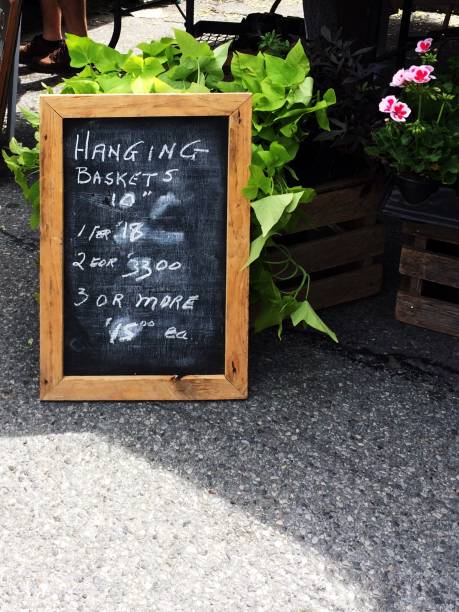 HANGING
BASKETS
10"
1 FOR $18
2 FOR $33.00
3 OR MORE
$15.00 ea.